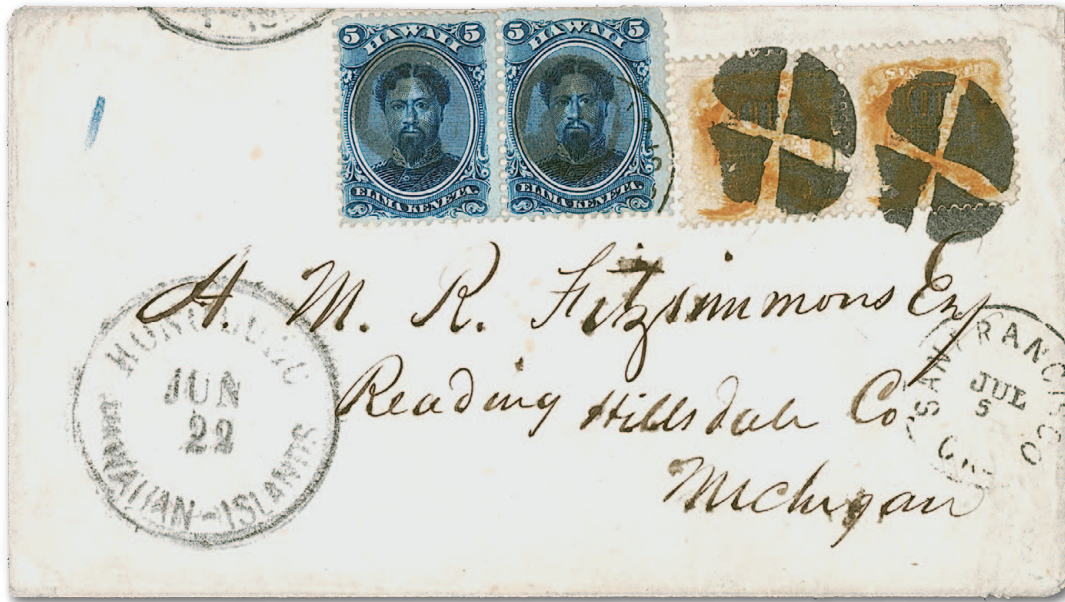 5 HAWAII 5
ELIMA KENETA.
5 HAWAII 5
ELIMA KENETA.
A. M. R. Fitzsimmons Esq
Reading Hillsdale Co
Michigan
HONOLULU
JUN
22
HAWAIIAN-ISLANDS
SAN FRANCISCO
JUL
5
CAL